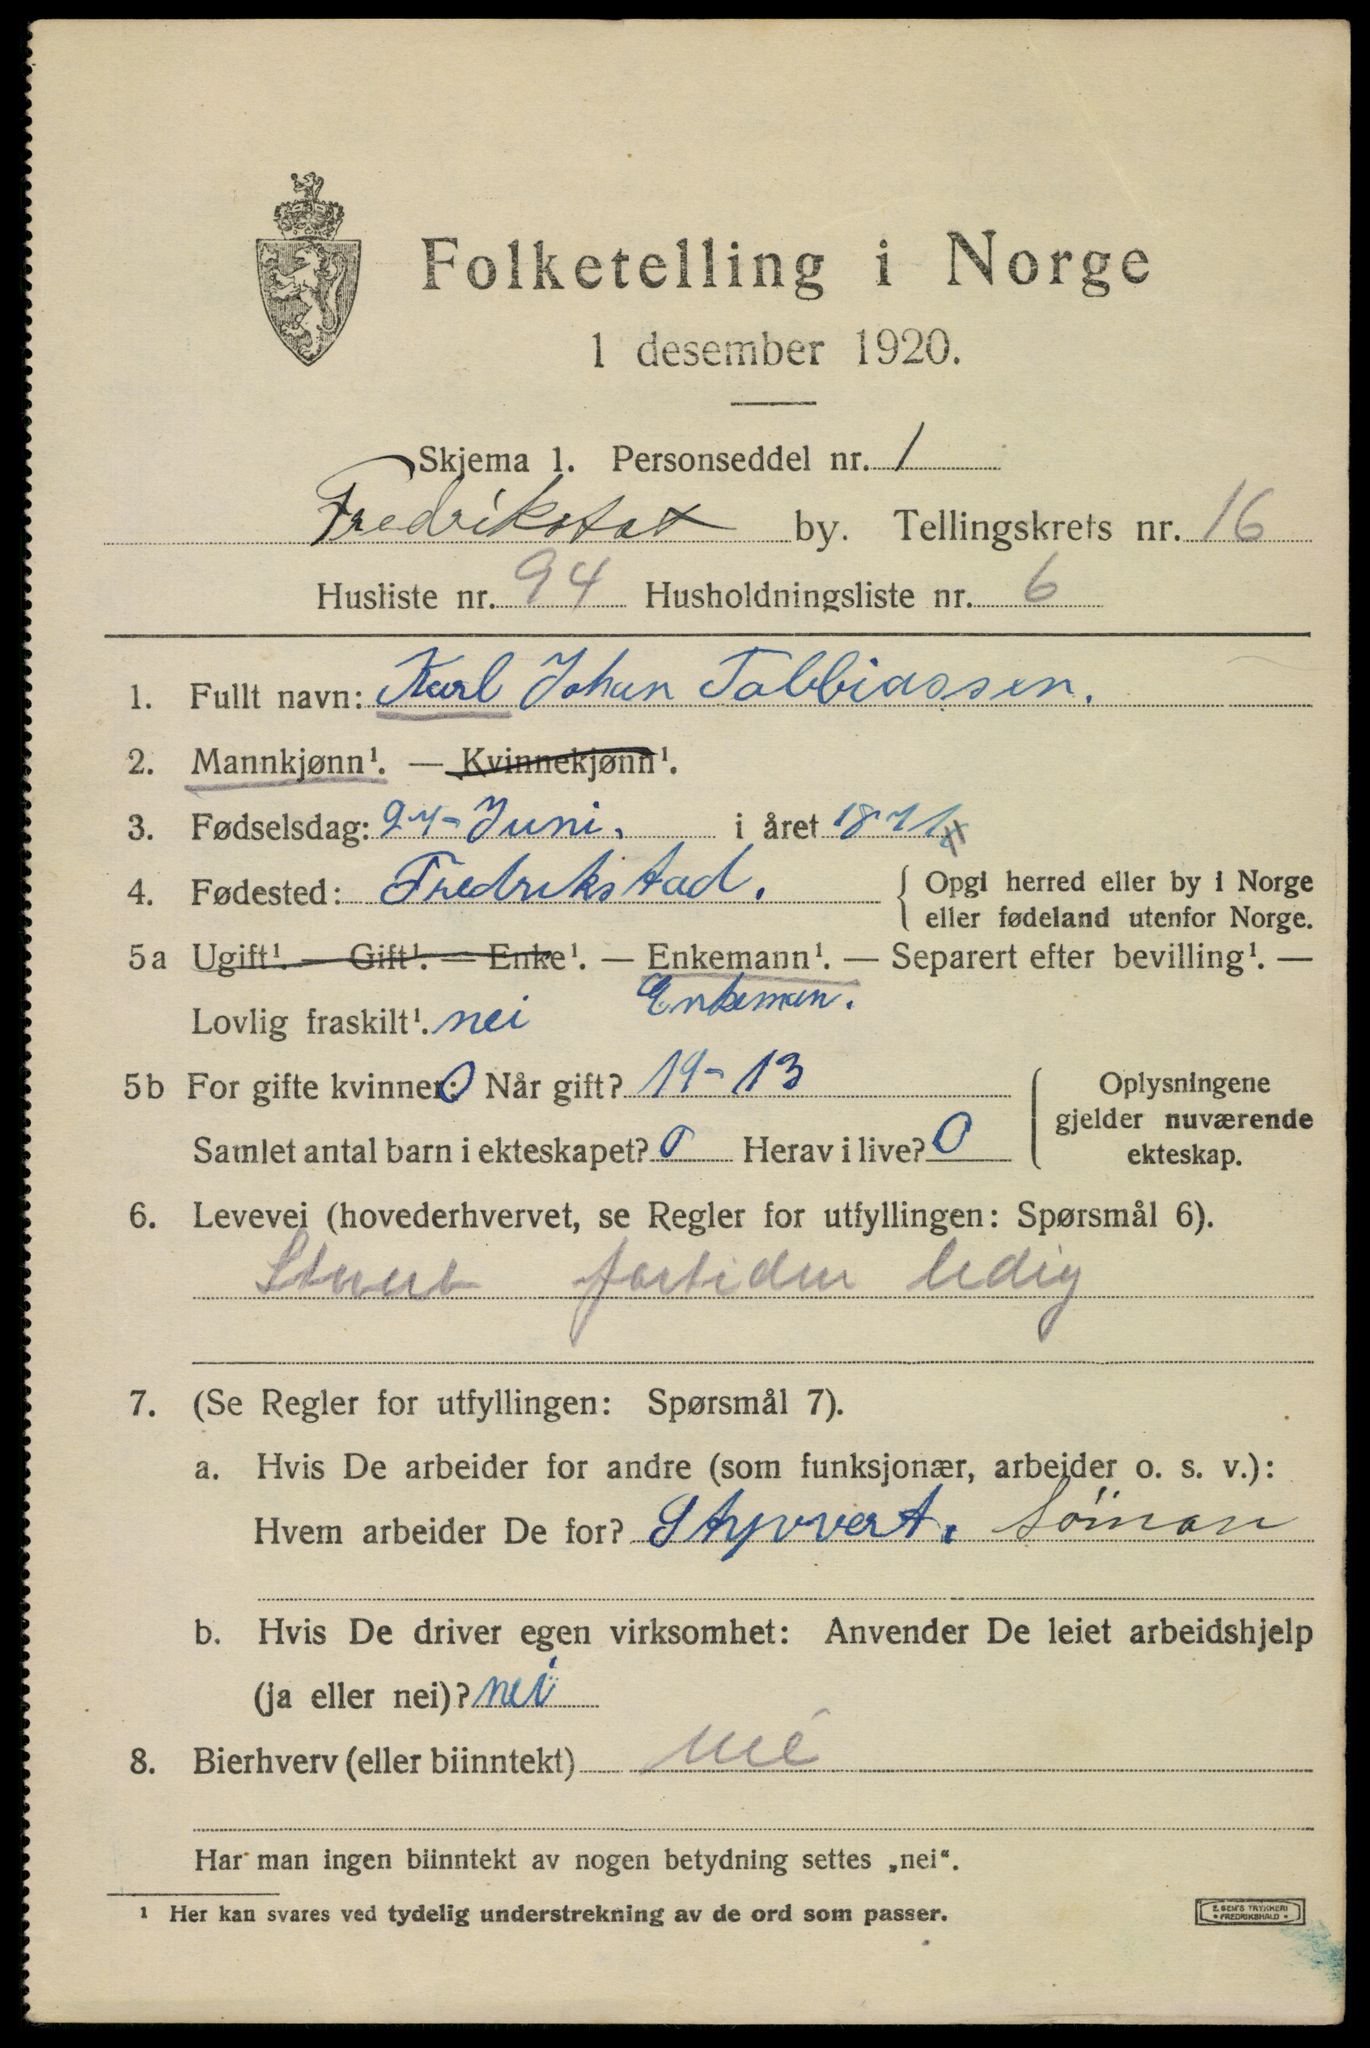 Folketelling i Norge
1 desember 1920.
Skjema 1. Personseddel nr. 1
Fredrikstat by. Tellingskrets nr. 16
Husliste nr. 94 Husholdningsliste nr. 6
1. Fullt navn: Karl Johan Tobbiassen.
2. Mannkjønn¹. — Kvinnekjønn¹.
3. Fødselsdag: 27- Juni. i året 1871
4. Fødested: Fredrikstad. { Opgi herred eller by i Norge
eller fødeland utenfor Norge.
5a Ugift¹. — Gift¹. — Enke¹. — Enkemann¹. — Separert efter bevilling¹. —
Lovlig fraskilt¹. nei Enkeman.
5b For gifte kvinner: 0 Når gift? 19-13
Samlet antal barn i ekteskapet? 0 Herav i live? 0
Oplysningene
gjelder nuværende
ekteskap.
6. Levevei (hovederhvervet, se Regler for utfyllingen: Spørsmål 6).
fortiden ledig
7. (Se Regler for utfyllingen: Spørsmål 7).
a. Hvis De arbeider for andre (som funksjonær, arbeider o. s. v.):
Hvem arbeider De for? Styvvert. Söman
b. Hvis De driver egen virksomhet: Anvender De leiet arbeidshjelp
(ja eller nei)? nei
8. Bierhverv (eller biinntekt) nei
Har man ingen biinntekt av nogen betydning settes „nei“.
¹ Her kan svares ved tydelig understrekning av de ord som passer.
E. SEM'S TRYKKERI
• FREDRIKSHALD •